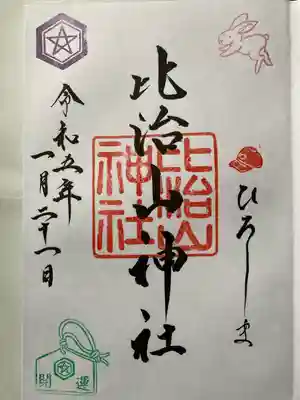 ひろしま
比治山神社
比治山
神社
令和五年
一月二十一日
開運